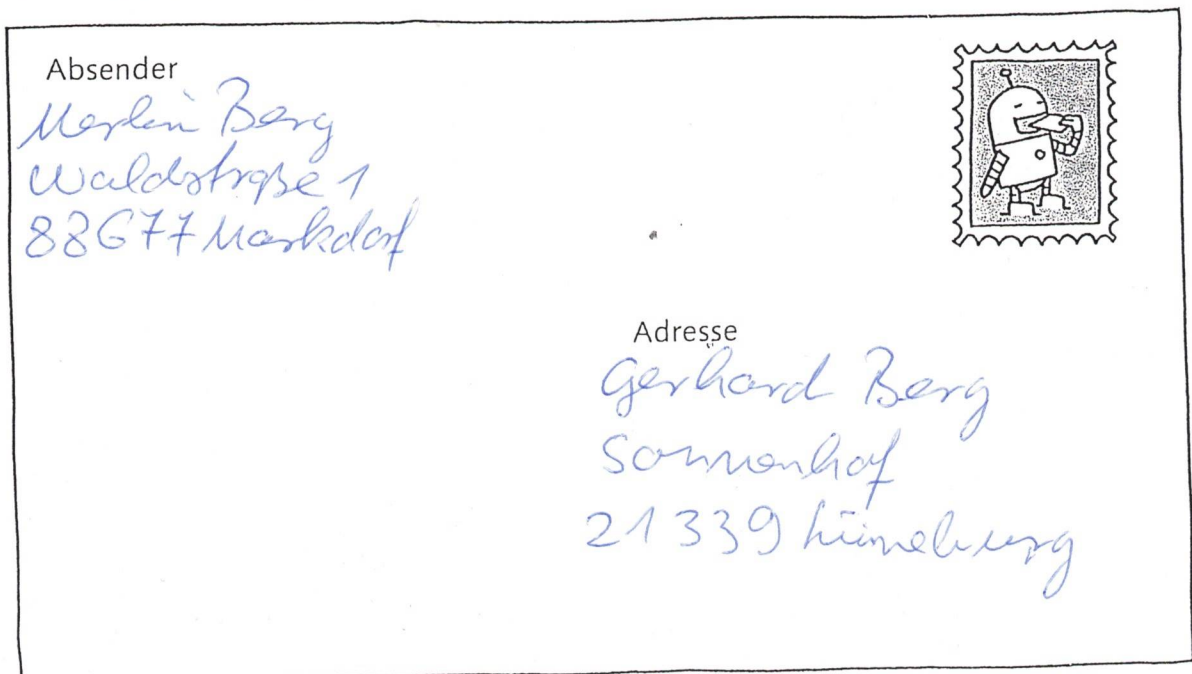 Absender
Merlin Berg
Waldstraße 1
88677 Markdorf
Adresse
Gerhard Berg
Sonnenhof
21339 Lüneburg